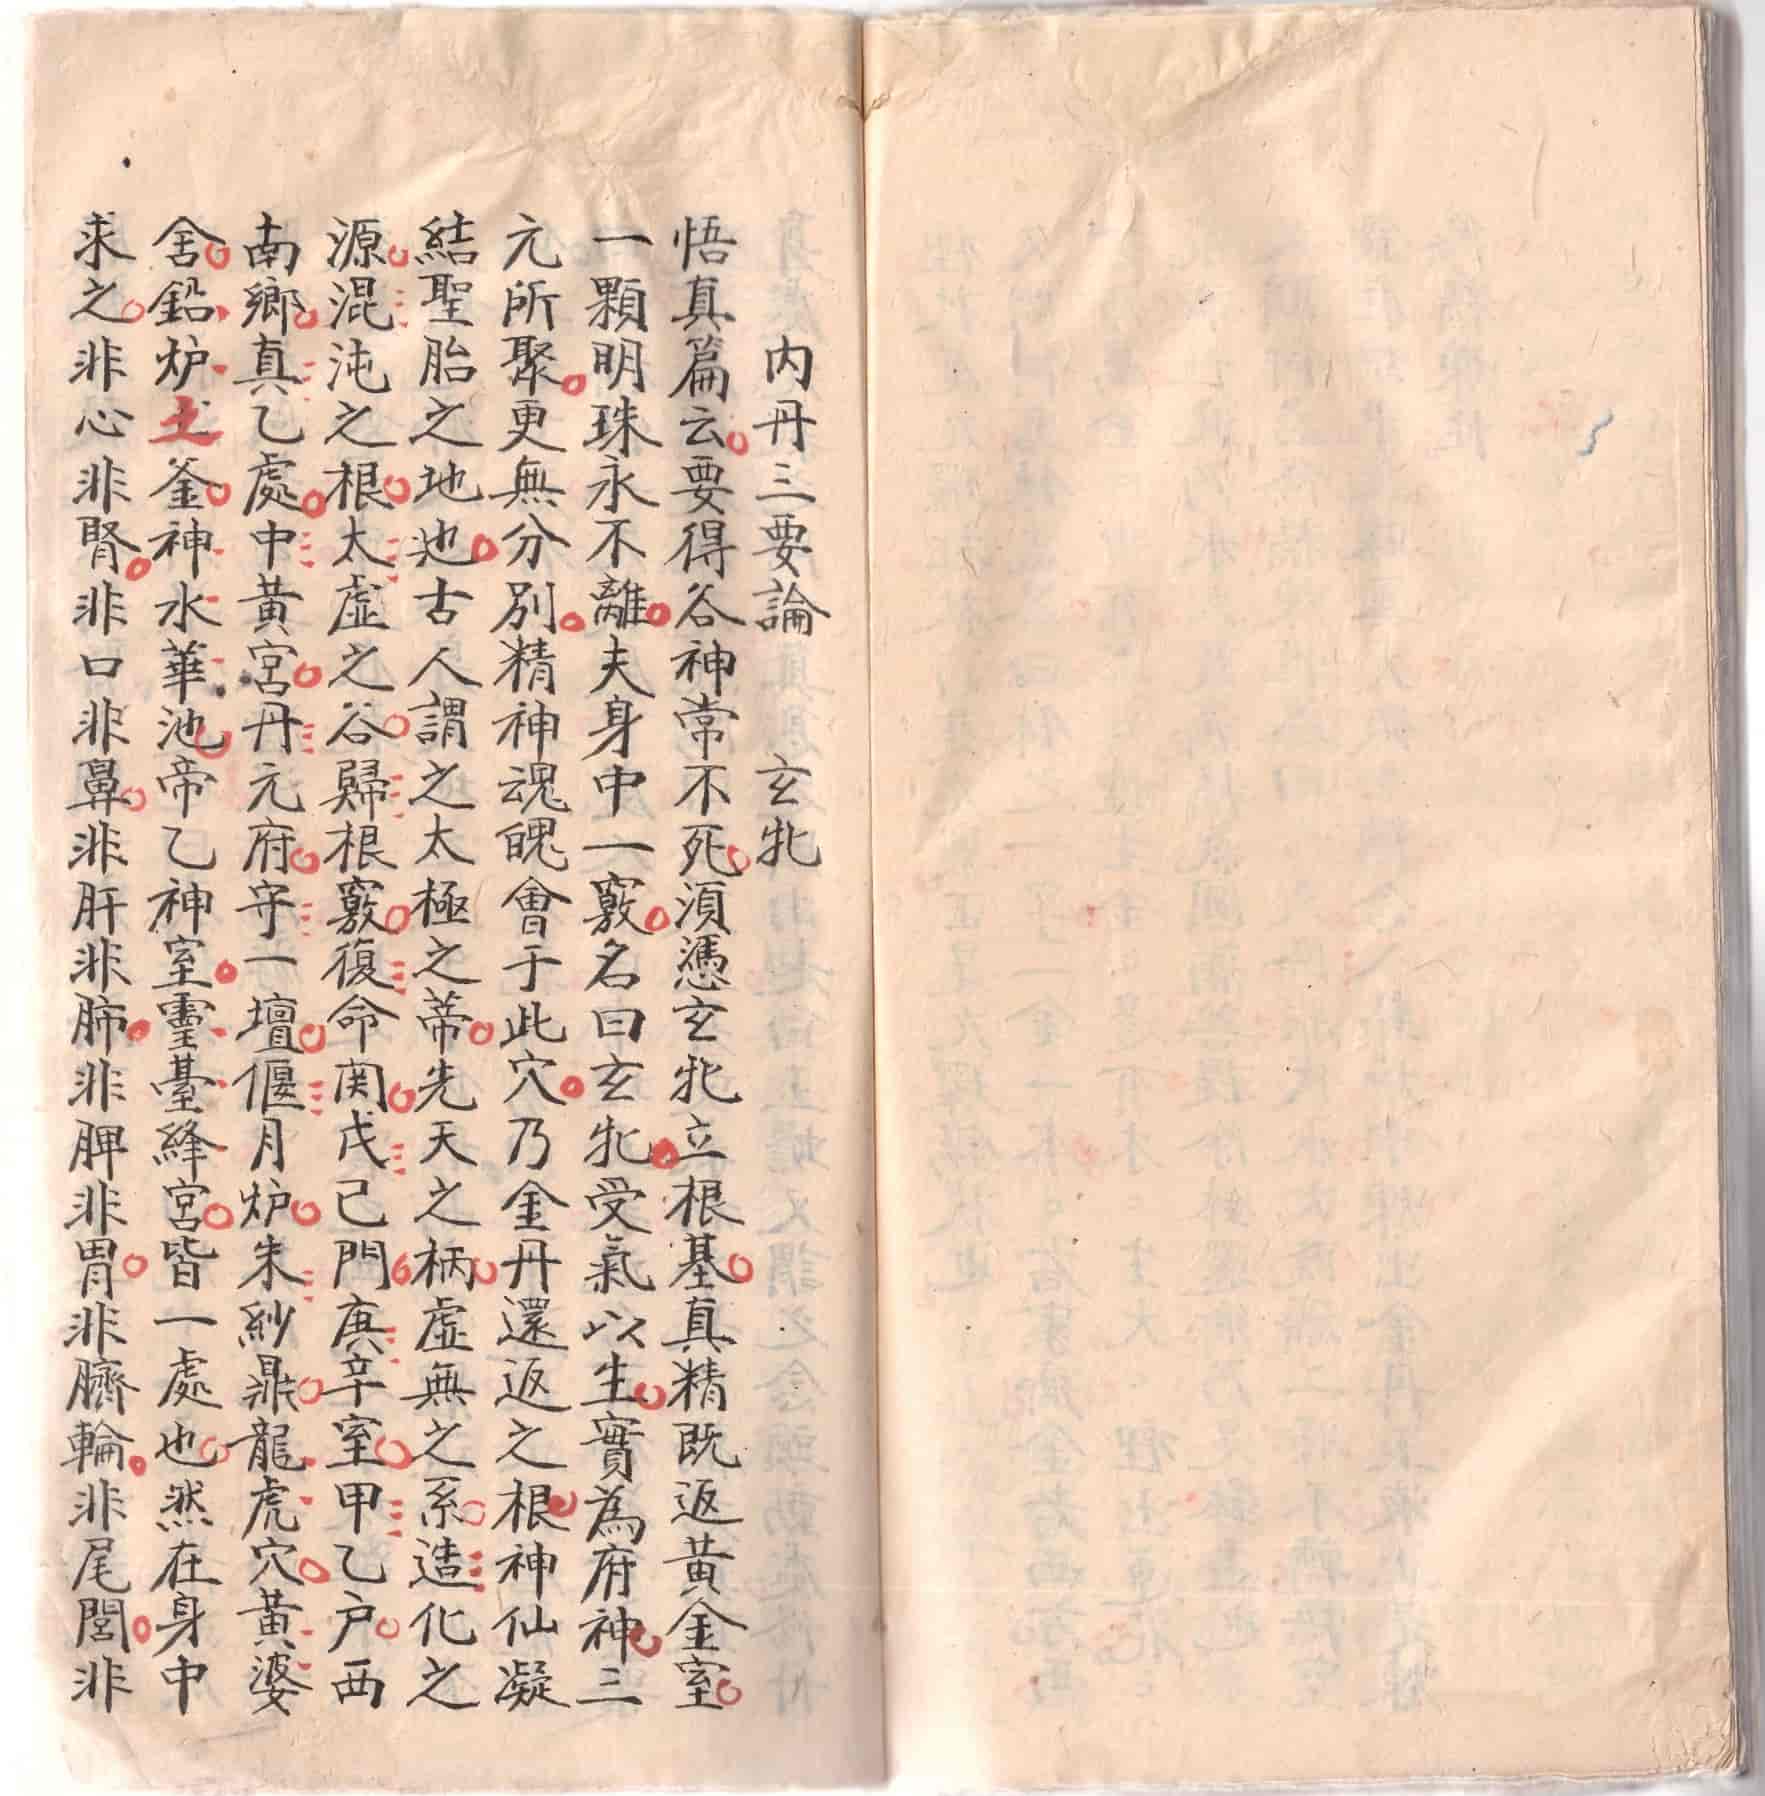 内丹三要論　玄牝
悟真篇云要得谷神常不死須憑玄牝立根基真精既返黄金室
一顆明珠永不離夫身中一竅名曰玄牝受氣以生實為府神三
元所聚更無分別精神魂魄會于此穴乃金丹還返之根神仙凝
結聖胎之地也古人謂之太極之蒂先天之柄虛無之系造化之
源混沌之根太虛之谷歸根竅復命関戊己門庚辛室甲乙户西
南鄉真乙處中黃宮丹元府守一壇偃月炉朱紗鼎龍虎穴黄婆
舍鉛炉土釜神水華池帝乙神室靈臺絳宮皆一處也然在身中
求之非心非腎非口非鼻非肝非肺非脾非胃非臍輪非尾閭非